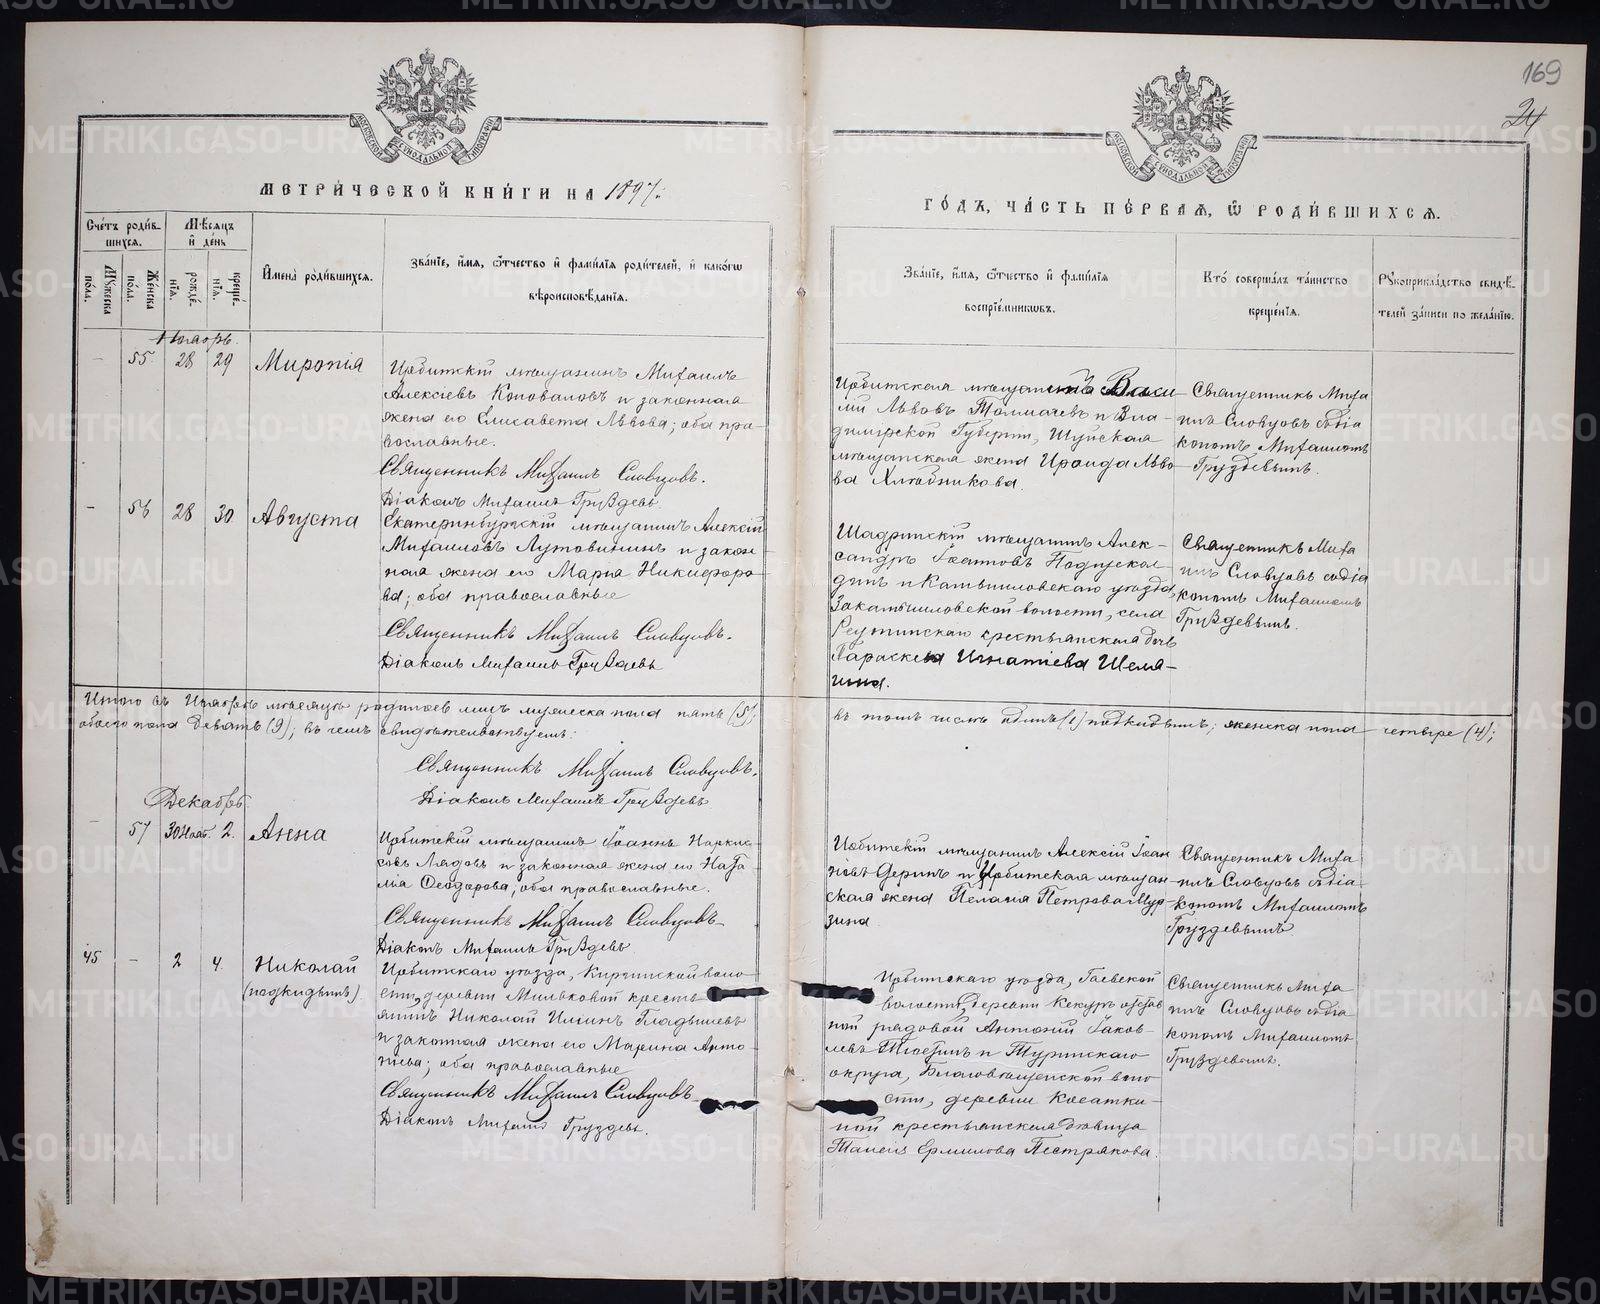 169
24
МОСКОВСКОЙ СѴНОДАЛЬНОЙ ТИПОГРАФІИ
МОСКОВСКОЙ СѴНОДАЛЬНОЙ ТИПОГРАФІИ
МЕТРИ́ЧЕСКОЙ КНИ́ГИ НА 1897 г.
ГО́ДЪ, ЧА́СТЬ ПЕ́РВАЯ, Ѡ҆ РОДИ́ВШИХСЯ.
Сче́тъ роди́в-
шихся.
Мѣ́сяцъ
и҆ де́нь
Мꙋ́жеска
по́ла.
Же́нска
по́ла.
рожде́-
нїя.
креще́-
нїя.
И҆мена̀ роди́вшихся.
Зва́нїе, и҆́мя, ѻ҆́тчество и҆ фами́лїя роди́телей, и҆ како́гѡ
вѣроисповѣ́данїя.
Зва́нїе, и҆́мя, ѻ҆́тчество и҆ фами́лїя
воспрїе́мникѡвъ.
Кто̀ соверша́лъ та́инство
креще́нїя.
Рꙋкоприкла́дство свидѣ́-
телей за́писи по жела́нїю.
Ноябрь.
- 55 28 29 Миропія
Ирбитскій мѣщанинъ Михаилъ
Алексіевъ Коноваловъ и законная
жена его Елисавета Львова; оба пра-
вославные.
Священникъ Михаилъ Словцовъ.
Діаконъ Михаилъ Груздевъ.
Ирбитская мѣщанинъ Васи-
лій Львовъ Толмачевъ и Вла-
димірской Губерніи, Шуйская
мѣщанская жена Ираида Льво-
ва Хлѣбникова
Священникъ Миха
илъ Словцовъ съ діа
кономъ Михаиломъ
Груздевымъ.
- 56 28 30 Августа
Екатеринбургскій мѣщанинъ Алексій
Михаиловъ Лутовининъ и закон-
ная жена его Марія Никифоро-
ва; оба православные
Священникъ Михаилъ Словцовъ.
Діаконъ Михаилъ Груздевъ
Шадринскій мѣщанинъ Алек-
сандръ Іоанновъ
и Камышловскаго уѣзда,
Закамышловской волости, села
крестьянская дочь
Параскева Игнатіева Шеля-
гина.
Священникъ Миха
илъ Словцовъ съ діа
кономъ Михаиломъ
Груздевымъ.
Итого въ Ноябрѣ мѣсяцѣ родилось лицъ мужеска пола пять (5), въ томъ числѣ одинъ (1) подкидышъ; женска пола четыре (4);
обоего пола девять (9); въ чемъ свидѣтельствуемъ:
Священникъ Михаилъ Словцовъ.
Діаконъ Михаилъ Груздевъ
Декабрь.
- 57 30 Нояб. 2. Анна
Ирбитскій мѣщанинъ Іоаннъ Наркис-
совъ Лядовъ и законная жена его Ната-
лія Ѳеодорова; оба православные.
Священникъ Михаилъ Словцовъ
Діаконъ Михаилъ Груздевъ
Ирбитскій мѣщанинъ Алексій Іоан
новъ Деринъ и Ирбитская мѣщан-
ская жена Пелагія Петрова Мур-
зина
Священникъ Миха
илъ Словцовъ съ діа-
кономъ Михаиломъ
Груздевымъ
45 - 2 4. Николай
(подкидышъ)
Ирбитскаго уѣзда, Киргинской воло-
сти, деревни Мильковой кресть
янинъ Николай Илiинъ Гладышевъ
и законная жена его Марина Анто-
нiева; оба православные
Священникъ Михаилъ Словцовъ
Діаконъ Михаилъ Груздевъ.
Ирбитскаго уѣзда, Гаевской
волости, деревни Кекуръ отстав
ной рядовой Антоній Іаков-
левъ и Туринскаго
округа, Благовѣщенской воло
сти, деревни Касатки-
ной крестьянская дѣвица
Таисія Ермилова Пестрякова.
Священникъ Миха
илъ Словцовъ съ діа
кономъ Михаиломъ
Груздевымъ.
METRIKI.GASO-URAL.RU